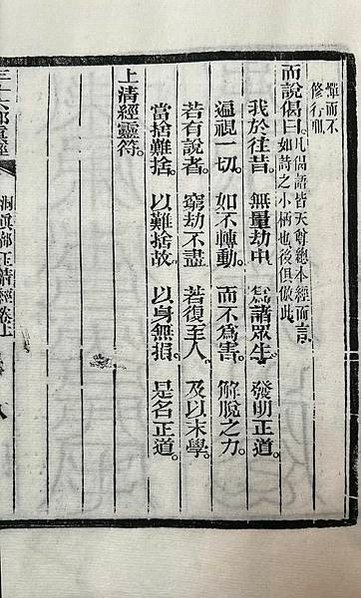 憚而不
修行㦲
而說偈曰。凡偈語皆天尊總本經而言
如詩之小柄也後俱倣此
我於往昔。無量劫中。為諸眾生。發明正道。
遍視一切。如不轉動。而不為害。解脫之力。
若有說者。窮劫不盡。若復至人。及以末學。
當捨難捨。以難捨故。以身無損。是名正道。
上清經靈符。
三十六部真經
洞真部上清經卷上
八